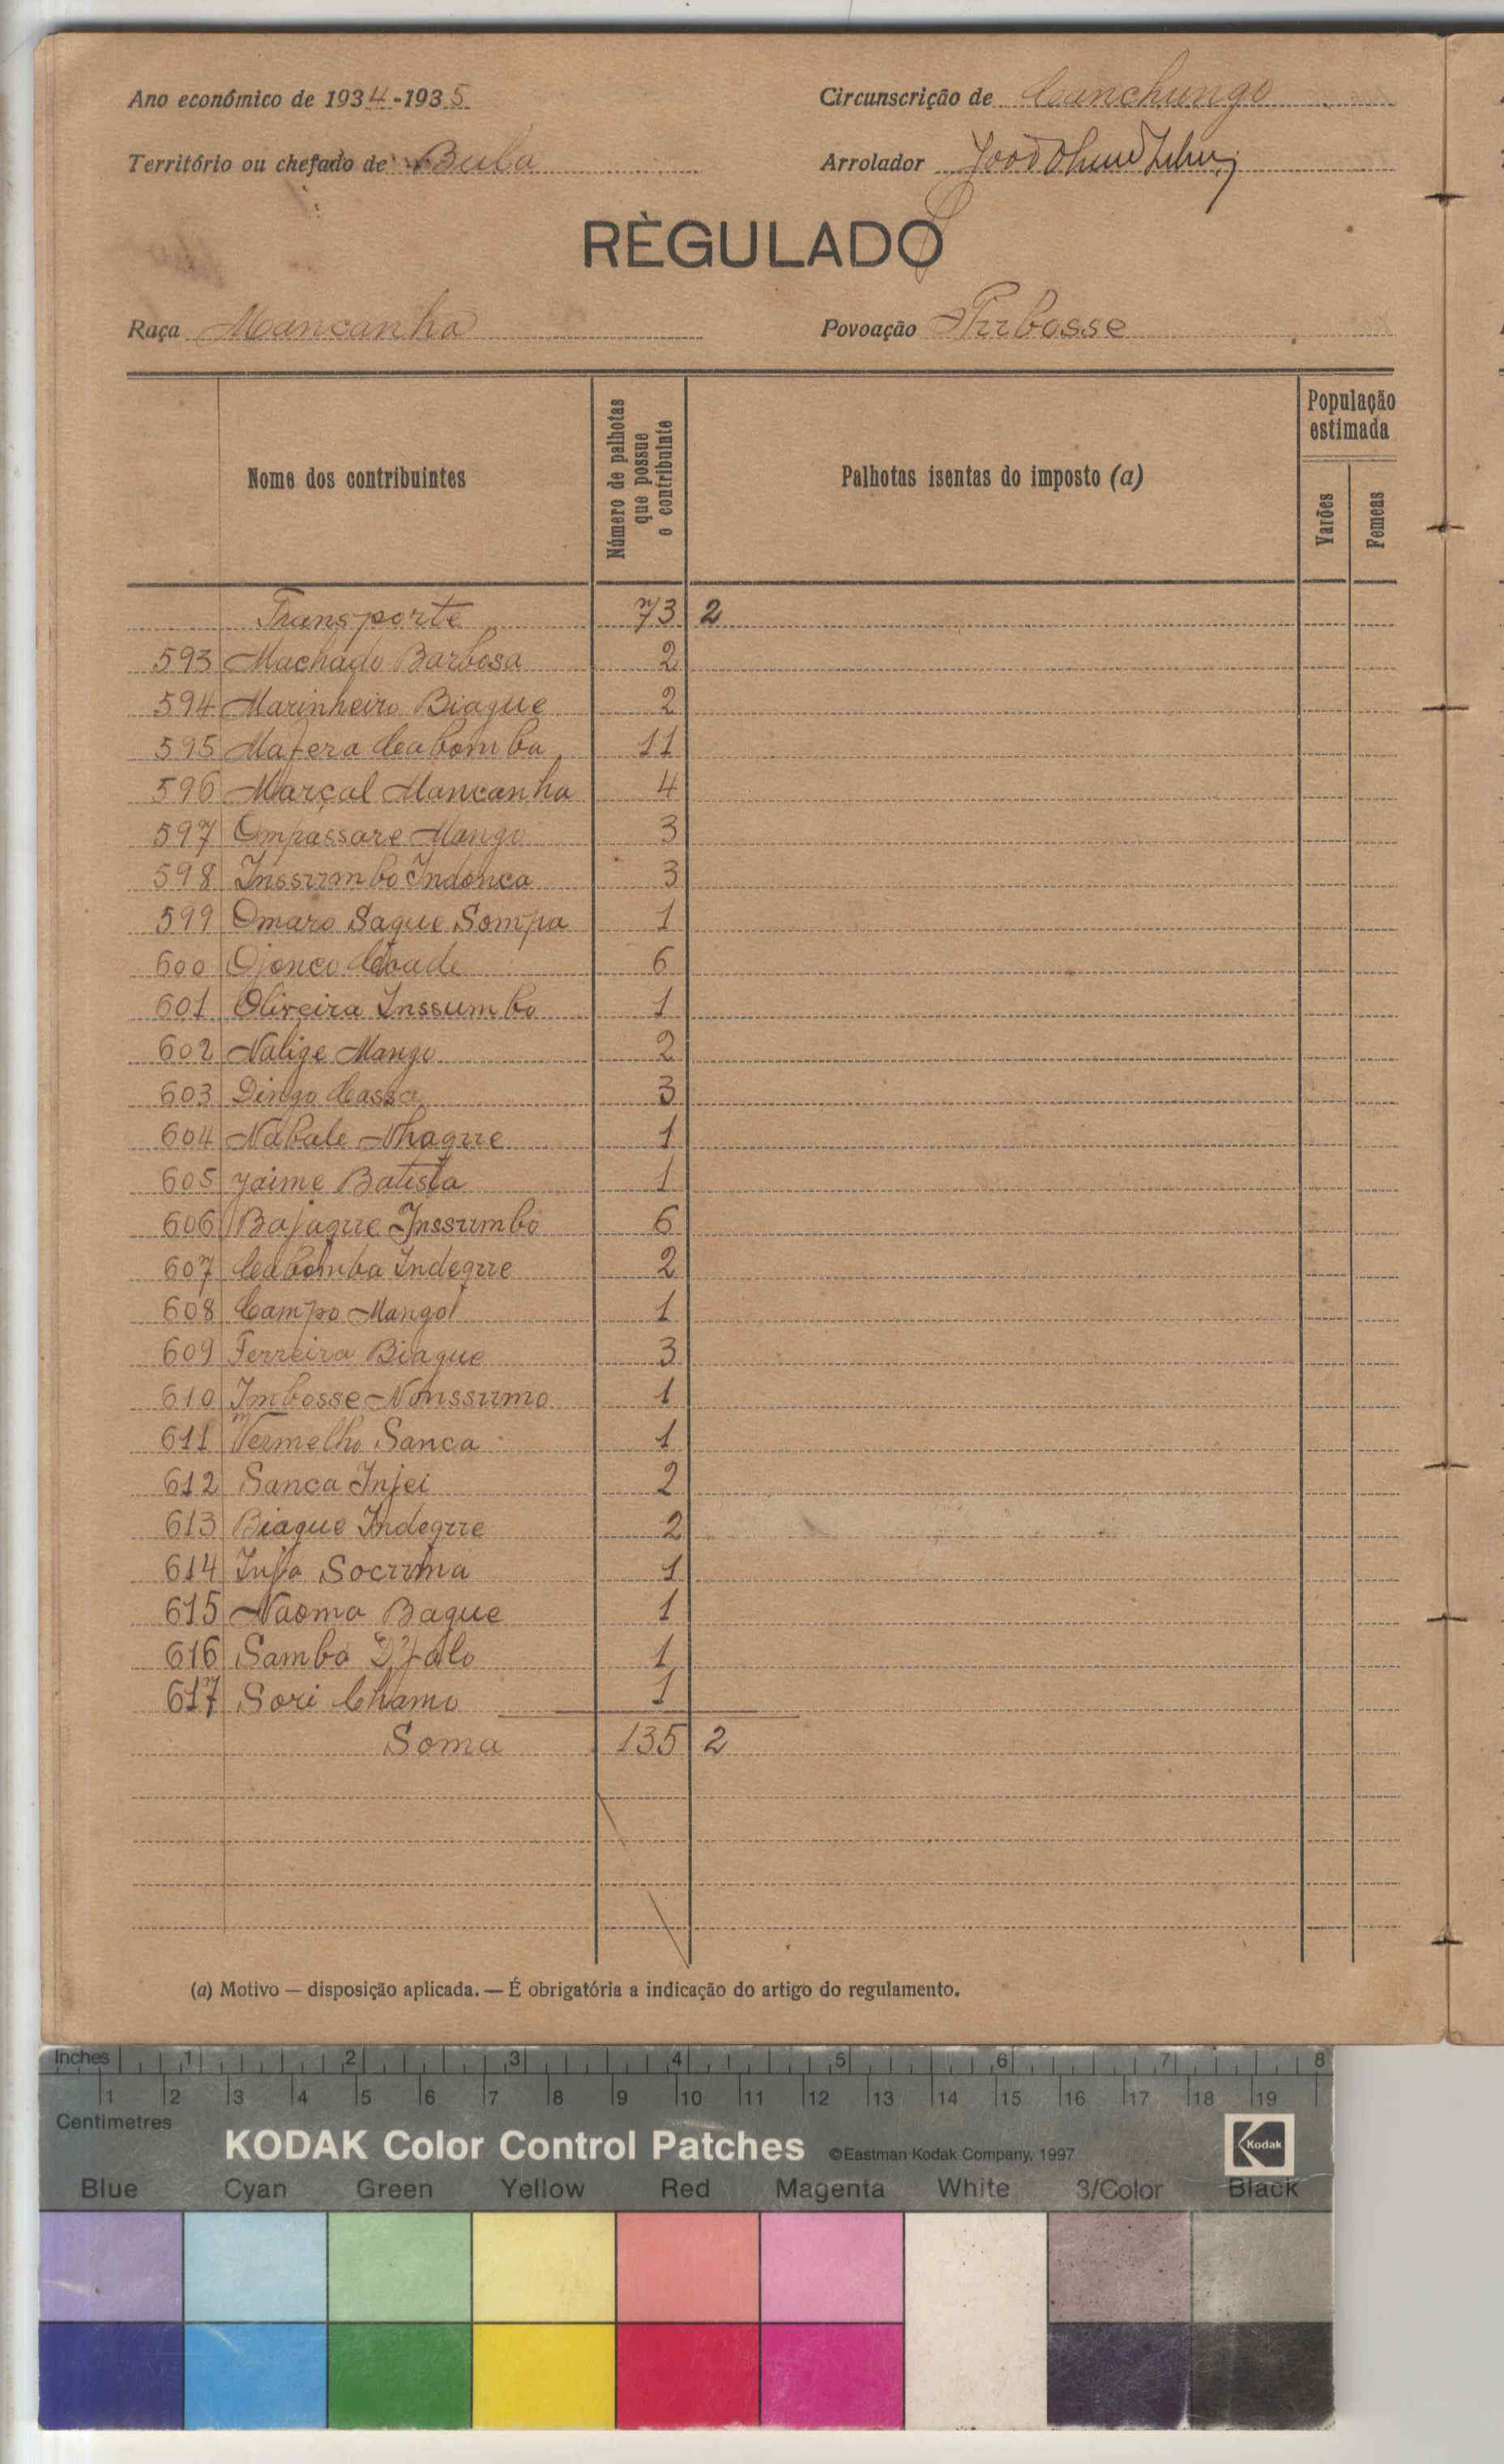 Ano económico de 1934-1935
Circunscrição de Canchungo
Território ou chefado de Bula
Arrolador
RÈGULADO
Raça Mancanha
Povoação Purbosse
Nome dos contribuintes
Número de palhotas que possue o contribuinte
Palhotas isentas do imposto (a)
População estimada
Varões
Femeas
Transporte 73 2
593 Machado Barbosa 2
594 Marinheiro Biague 2
595 Mafera Cabomba 11
596 Marçal Mancanha 4
597 Ompassare Mango 3
598 Inssumbo Indonca 3
599 Omaro Saque Sompa 1
600 Ojonco 6
601 Oliveira Inssumbo 1
602 Nalige Mango 2
603 Dingo Cassa 3
604 Nabale Nhague 1
605 Jaime Batista 1
606 Bajague Inssumbo 6
607 Cabomba Indegue 2
608 Campo Mango 1
609 Ferreira Biague 3
610 Imbosse Nonssumo 1
611 Vermelho Sanca 1
612 Sanca Injei 2
613 Biague Indegue 2
614 Socuma 1
615 Naoma Bague 1
616 Samba Djalo 1
617 Sori Chamo 1
Soma 135 2
(a) Motivo — disposição aplicada. — É obrigatória a indicação do artigo do regulamento.
Inches 1 2 3 4 5 6 7 8
1 2 3 4 5 6 7 8 9 10 11 12 13 14 15 16 17 18 19
Centimetres
KODAK Color Control Patches ©Eastman Kodak Company, 1997 Kodak
Blue Cyan Green Yellow Red Magenta White 3/Color Black